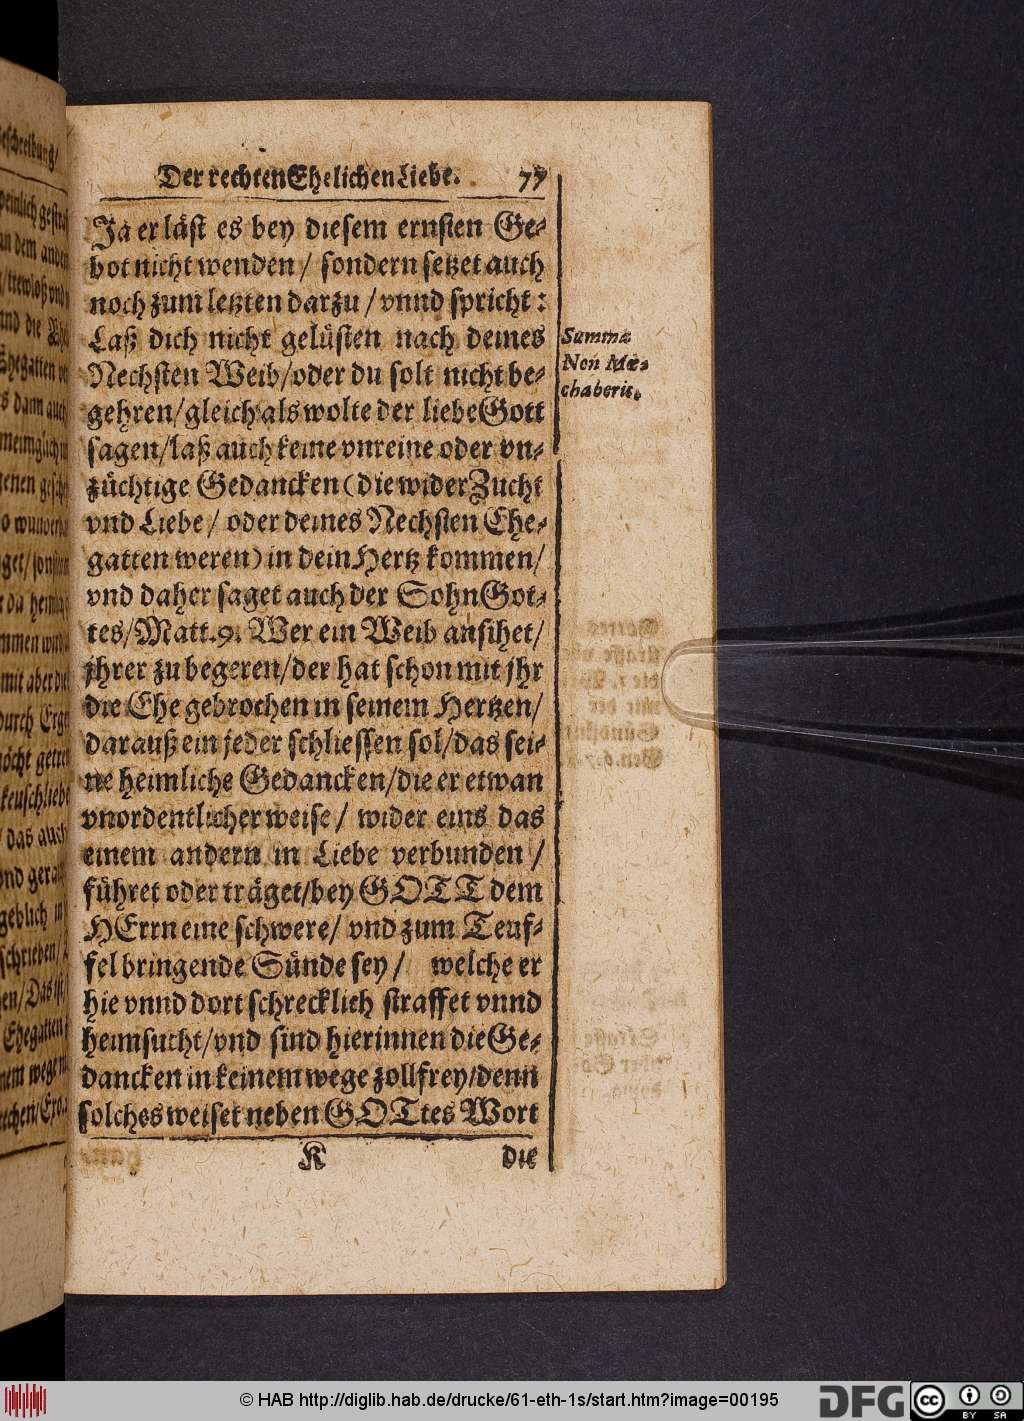 Der rechten Ehelichen Liebe. 77
Ja er läst es bey diesem ernsten Ge-
bot nicht wenden / sondern setzet auch
noch zum letzten darzu / vnnd spricht:
Laß dich nicht gelüsten nach deines
Nechsten Weib/oder du solt nicht be-
gehren/gleich als wolte der liebe Gott
sagen/laß auch keine vnreine oder vn-
züchtige Gedancken (die wider Zucht
vnd Liebe / oder deines Nechsten Ehe-
gatten weren) in dein Hertz kommen/
vnd daher saget auch der Sohn Got-
tes/Matt.9. Wer ein Weib ansihet/
jhrer zu begeren/der hat schon mit jhr
die Ehe gebrochen in seinem Hertzen/
darauß ein jeder schliessen sol/das sei-
ne heimliche Gedancken/die er etwan
vnordentlicher weise / wider eins das
einem andern in Liebe verbunden /
führet oder träget/bey GOTT dem
HErrn eine schwere/ vnd zum Teuf-
fel bringende Sünde sey / welche er
hie vnnd dort schrecklich straffet vnnd
heimsucht/vnd sind hierinnen die Ge-
dancken in keinem wege zollfrey/denn
solches weiset neben GOTtes Wort
K die
Summa
Non Mœ-
chaberis.
© HAB http://diglib.hab.de/drucke/61-eth-1s/start.htm?image=00195
DFG
cc BY SA